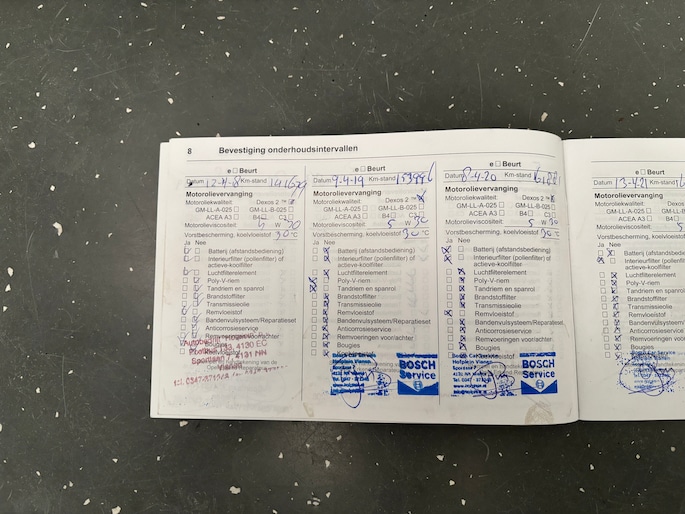 8 Bevestiging onderhoudsintervallen
e □ Beurt
Datum Km-stand
Motorolievervanging
Motoroliekwaliteit: Dexos 2 ™
GM-LL-A-025 □ GM-LL-B-025 □
ACEA A3 □ B4 □ C3
Motorolieviscositeit: 5 W 30
Vorstbescherming, koelvloeistof 30 °C
Ja Nee
Batterij (afstandsbediening)
Interieurfilter (pollenfilter) of
actieve-koolfilter
Luchtfilterelement
Poly-V-riem
Tandriem en spanrol
Brandstoffilter
Transmissieolie
Remvloeistof
Bandenvulsysteem/Reparatieset
Anticorrosieservice
Remvoeringen voor/achter
Bougies
Sportlaan 7, 4131 NN
Vianen
.e □ Beurt
Datum 9-4-19 Km-stand
Motorolievervanging
Motoroliekwaliteit: Dexos 2 ™
GM-LL-A-025 □ GM-LL-B-025 □
ACEA A3 □ B4 □ C3 □
Motorolieviscositeit: 5 W 30
Vorstbescherming, koelvloeistof 30 °C
Ja Nee
Batterij (afstandsbediening)
Interieurfilter (pollenfilter) of
actieve-koolfilter
Luchtfilterelement
Poly-V-riem
Tandriem en spanrol
Brandstoffilter
Transmissieolie
Remvloeistof
Bandenvulsysteem/Reparatieset
Anticorrosieservice
Remvoeringen voor/achter
Bougies
Bosch Car Service
Vianen
BOSCH
Service
.e □ Beurt
Datum 8-4-20 Km-stand
Motorolievervanging
Motoroliekwaliteit: Dexos 2 ™
GM-LL-A-025 □ GM-LL-B-025 □
ACEA A3 □ B4 □ C3
Motorolieviscositeit: 5 W 30
Vorstbescherming, koelvloeistof 30 °C
Ja Nee
Batterij (afstandsbediening)
Interieurfilter (pollenfilter) of
actieve-koolfilter
Luchtfilterelement
Poly-V-riem
Tandriem en spanrol
Brandstoffilter
Transmissieolie
Remvloeistof
Bandenvulsysteem/Reparatieset
Anticorrosieservice
Remvoeringen voor/achter
Bougies
Bosch Car Service
Vianen
BOSCH
Service
.e □ Beurt
Datum 13-4-21 Km-stand
Motorolievervanging
Motoroliekwaliteit:
GM-LL-A-025
ACEA A3 □
Motorolieviscositeit:
Vorstbescherming, koelvloeistof
Ja Nee
Batterij (afstandsb
Interieurfilter (polle
actieve-koolfilter
Luchtfilterelement
Poly-V-riem
Tandriem en spa
Brandstoffilter
Transmissieolie
Remvloeistof
Bandenvulsyste
Anticorrosieserv
Remvoeringen v
Bougies
Bosch Car Service